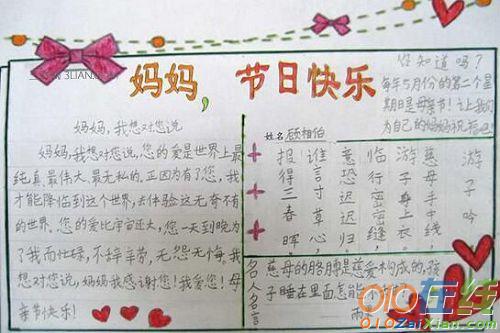 3LIAN
妈妈，节日快乐
你知道吗?
每年5月份的第二个星
期日是母亲节!让我们
为自己的妈妈祝福吧
妈妈,我想对您说
妈妈,我想对您说,您的爱是世界上最
纯真、最伟大、最无私的。正因为有了您,我
才能降临到这个世界,去体验这无奇不有
的世界。您的爱比宇宙还大,您一天到晚为
了我而忙碌,不辞辛劳,无怨无悔,我
想对您说,妈妈我感谢您!我爱您!母
亲节快乐!
姓名 顾相伯
游子吟
慈母手中线,
游子身上衣。
临行密密缝,
意恐迟迟归。
谁言寸草心,
报得三春晖。
名人名言
慈母的胳膊是慈爱构成的,孩
子睡在里面怎能不
雨
010在线
010ZaiXian.com